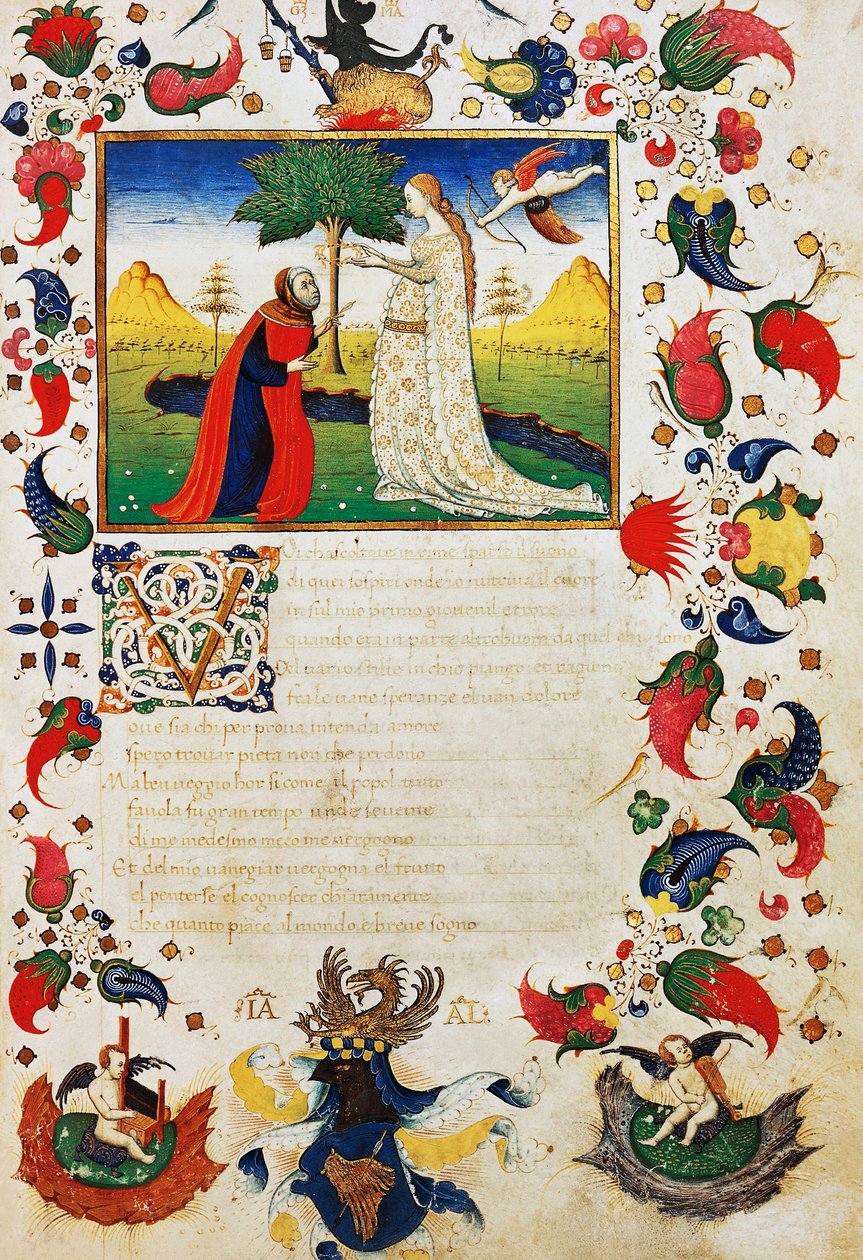 MA
VOi chascoltate in rime sparse il suono
di quei sospiri ondio nutriua il cuore
in sul mio primo giouenil errore
quando era in parte altrobuom da quel chi sono
Del uario stile in chio piango et ragiono
fra le uane speranze el uan dolore
oue sia chi per proua intenda amore
spero trouar pieta non che perdono
Ma ben ueggio hor si come il popol tutto
fauola fu gran tempo onde souente
di me medesmo meco me uergogno
Et del mio uanegiar uergogna el frutto
el penterse el cognoscer chiaramente
che quanto piace al mondo è breue sogno
IA AL